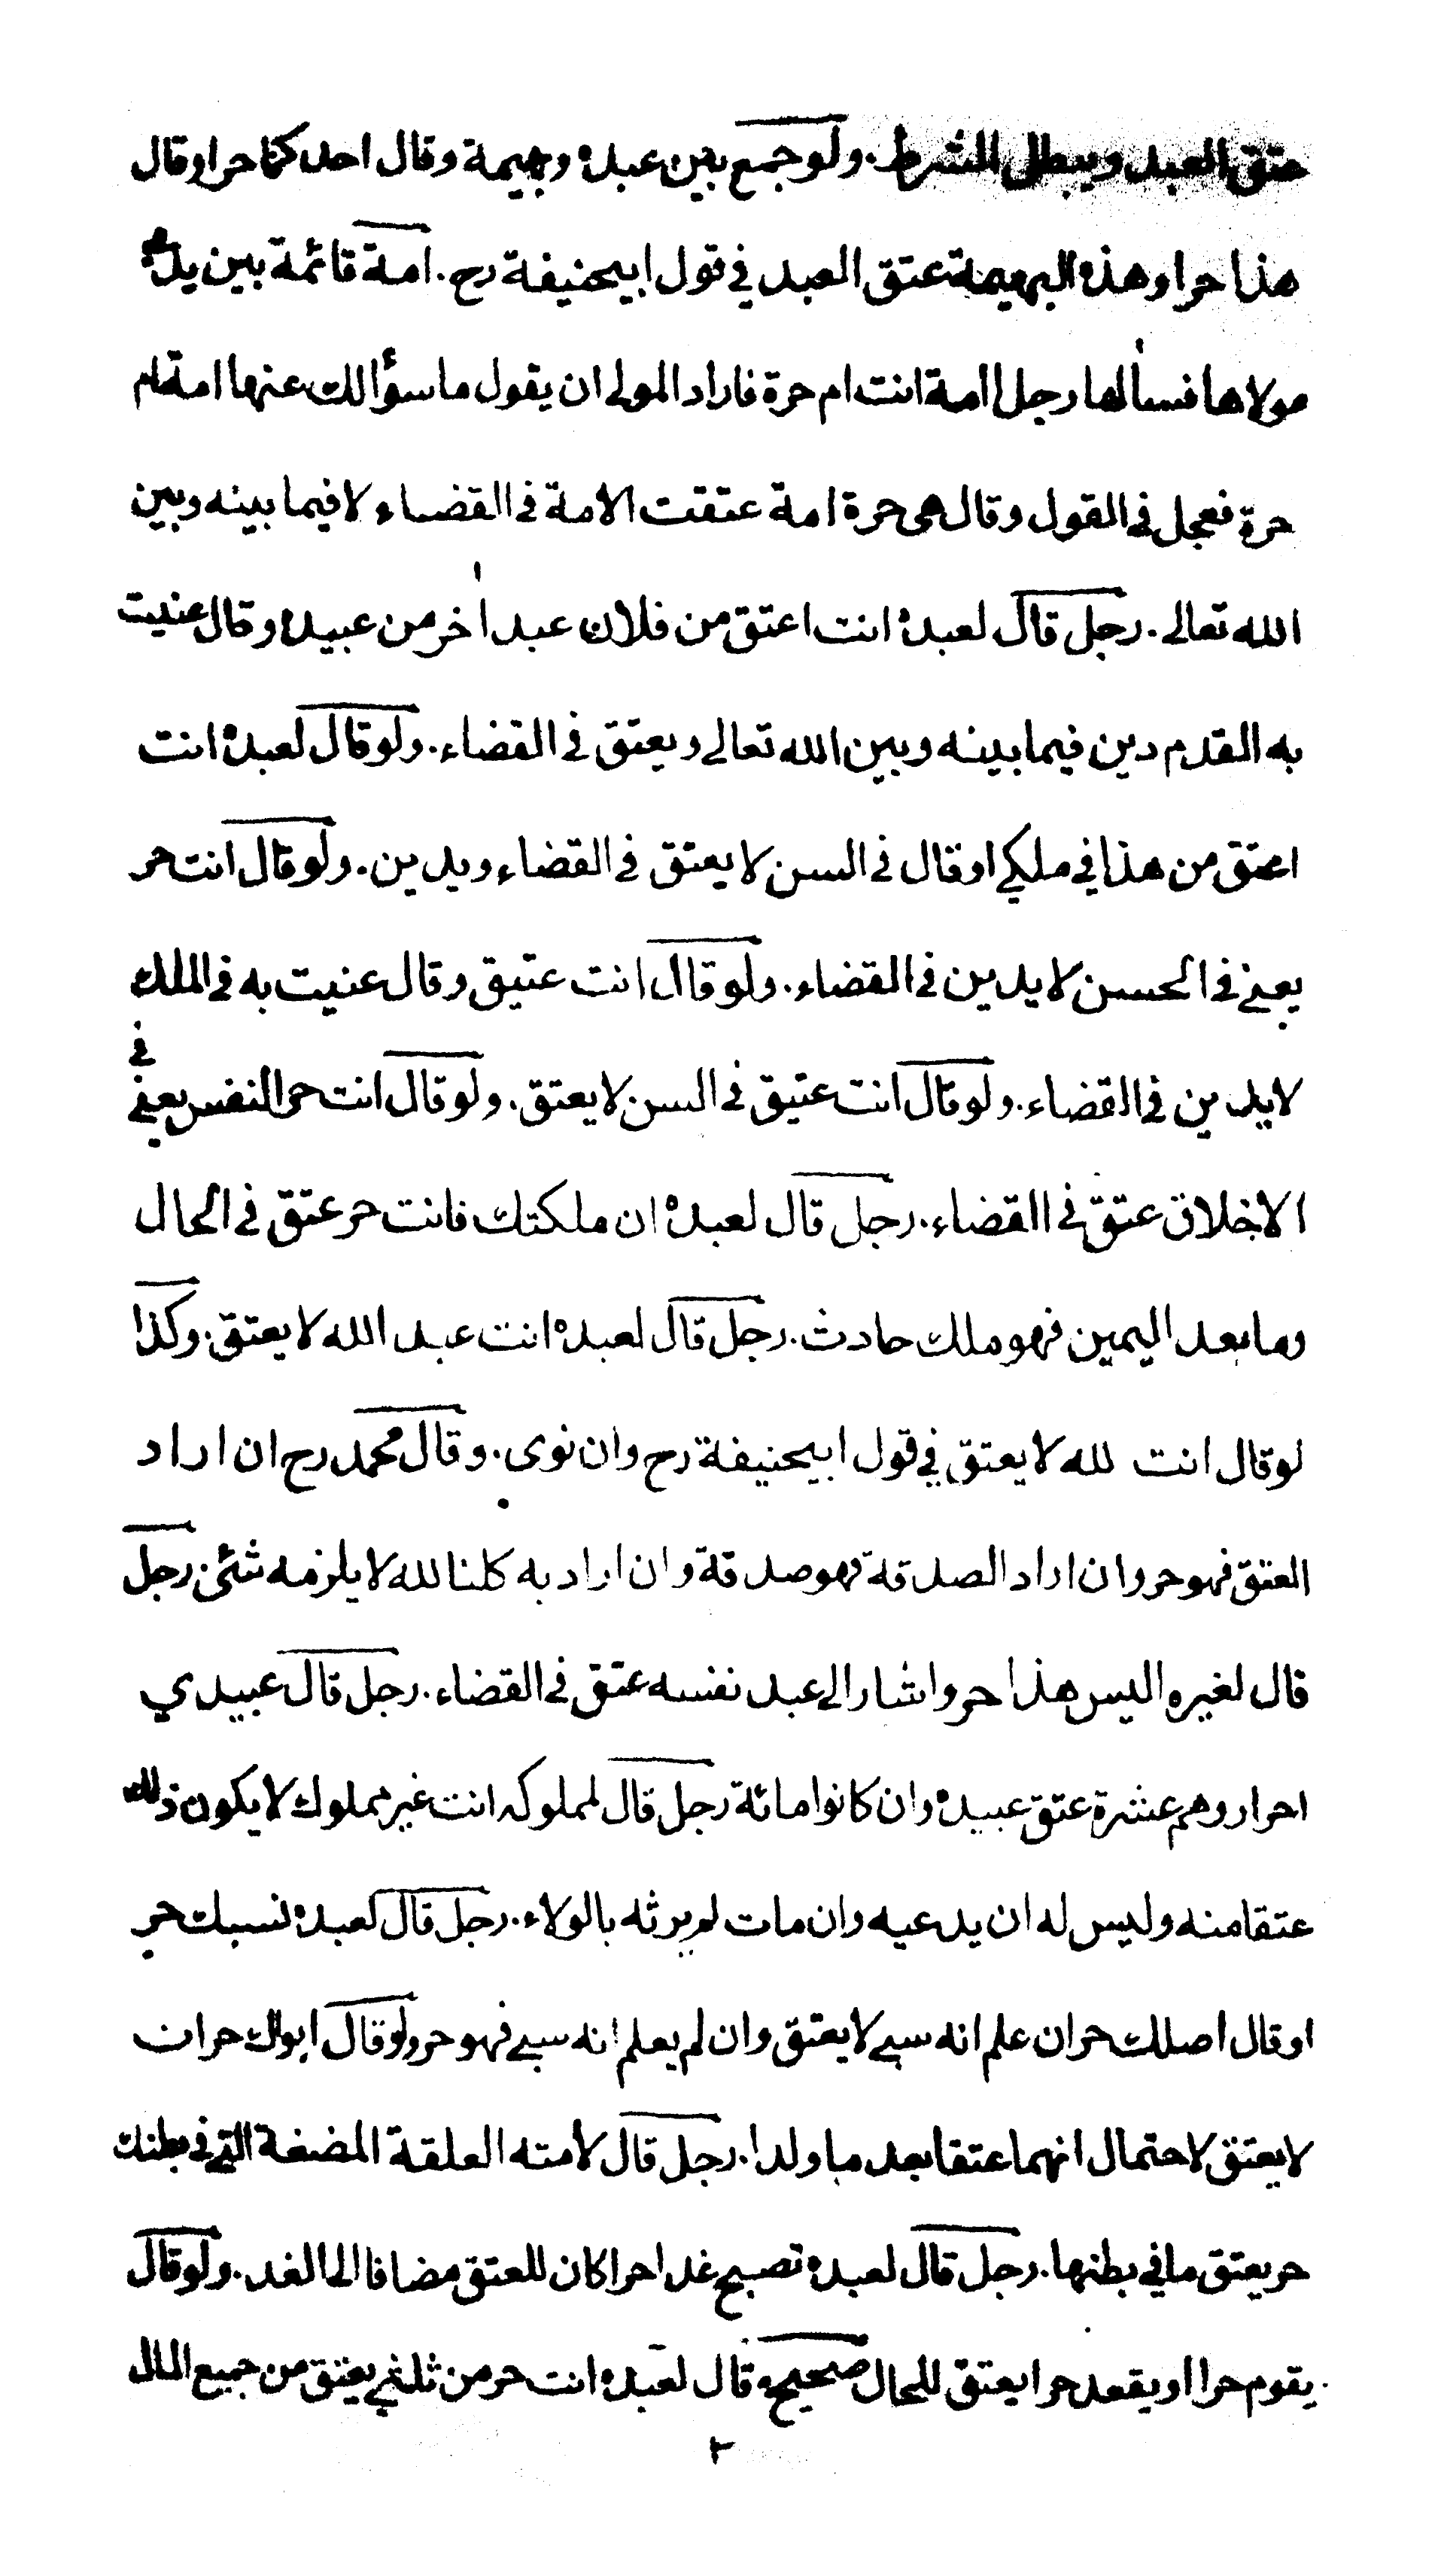 عتق العبد ويبطل الشرط. ولو جمع بين عبده وبهيمة وقال احدكما حر او قال
هذا حر او هذه البهيمة عتق العبد في قول ابيحنيفة رح. امة قائمة بين يدي
مولاها فسألها رجل اامة انت ام حرة فاراد المولى ان يقول ما سؤالك عنها امة ام
حرة فعجل في القول وقال هى حرة امة عتقت الامة في القضاء لا فيما بينه وبين
الله تعالى. رجل قال لعبده انت اعتق من فلان عبد اٰخر من عبيده وقال عنيت
به القدم دين فيما بينه وبين الله تعالى ويعتق في القضاء. ولو قال لعبده انت
اعتق من هذا في ملكي او قال في السن لا يعتق في القضاء ويدين. ولو قال انت حر
يعني في الحسن لا يدين في القضاء. ولو قال انت عتيق وقال عنيت به في الملك
لا يدين في القضاء. ولو قال انت عتيق في السن لا يعتق. ولو قال انت حر النفس يعني في
الاخلاق عتق في القضاء. رجل قال لعبده ان ملكتك فانت حر عتق في الحال
وما بعد اليمين فهو ملك حادث. رجل قال لعبده انت عبد الله لا يعتق. وكذا
لو قال انت لله لا يعتق في قول ابيحنيفة رح وان نوى. وقال محمد رح ان اراد
العتق فهو حر وان اراد الصدقة فهو صدقة وان اراد به كلنا لله لا يلزمه شئ رجل
قال لغيره اليس هذا حر واشار الى عبد نفسه عتق في القضاء. رجل قال عبيدي
احرار وهم عشرة عتق عبيده وان كانوا مائة رجل قال لمملوكه انت غير مملوك لا يكون ذلك
عتقا منه وليس له ان يدعيه وان مات لم يرثه بالولاء. رجل قال لعبده نسبك حر
او قال اصلك حر ان علم انه سبي لا يعتق وان لم يعلم انه سبي فهو حر ولو قال ابواك حران
لا يعتق لاحتمال انهما عتقا بعد ما ولدا. رجل قال لامته العلقة المضغة التي في بطنك
حر يعتق ما في بطنها. رجل قال لعبده تصبح غدا حرا كان للعتق مضافا الى الغد. ولو قال
يقوم حرا او يقعد حرا يعتق للحال صحيح قال لعبده انت حر من ثلثي يعتق من جميع المال
٢